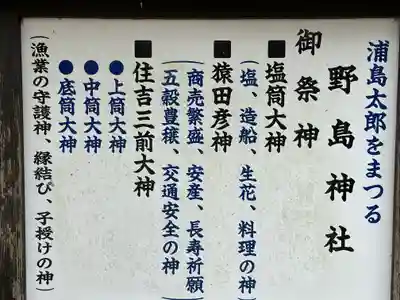 浦島太郎をまつる
野島神社
御祭神
■塩筒大神
(塩、造船、生花、料理の神)
■猿田彦神
(商売繁盛、安産、長寿祈願
五穀豊穣、交通安全の神)
■住吉三前大神
●上筒大神
●中筒大神
●底筒大神
(漁業の守護神、縁結び、子授けの神)